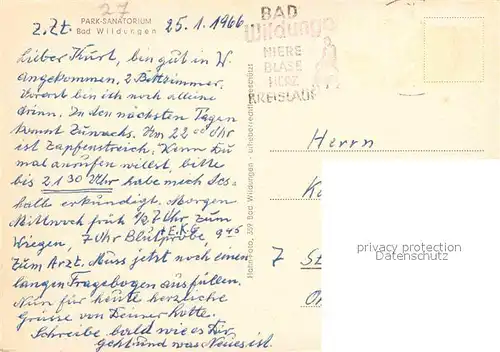 27
z.Zt. PARK-SANATORIUM
Bad Wildungen
25.1.1966
BAD
Wildungen
NIERE
BLASE
HERZ
KREISLAUF
Lieber Kurt, bin gut in W.
angekommen. 2 Bettzimmer.
Vorerst bin ich noch alleine
drinn. In den nächsten Tagen
kommt Zuwachs. Um 22⁰⁰ Uhr
ist Zapfenstreich. Wenn Du
mal anrufen willst, bitte
bis 21³⁰ Uhr habe mich des-
halb erkundigt. Morgen
Mittwoch früh ½7 Uhr zum
Wiegen, 7 Uhr Blutprobe, + E.K.G. 9⁴⁵
zum Arzt. Muss jetzt noch einen
langen Fragebogen ausfüllen.
Nun für heute herzliche
Grüsse von Deiner Lotte.
Schreibe bald wie es Dir
geht und was Neues ist.
Herrn
7
protected by copyright